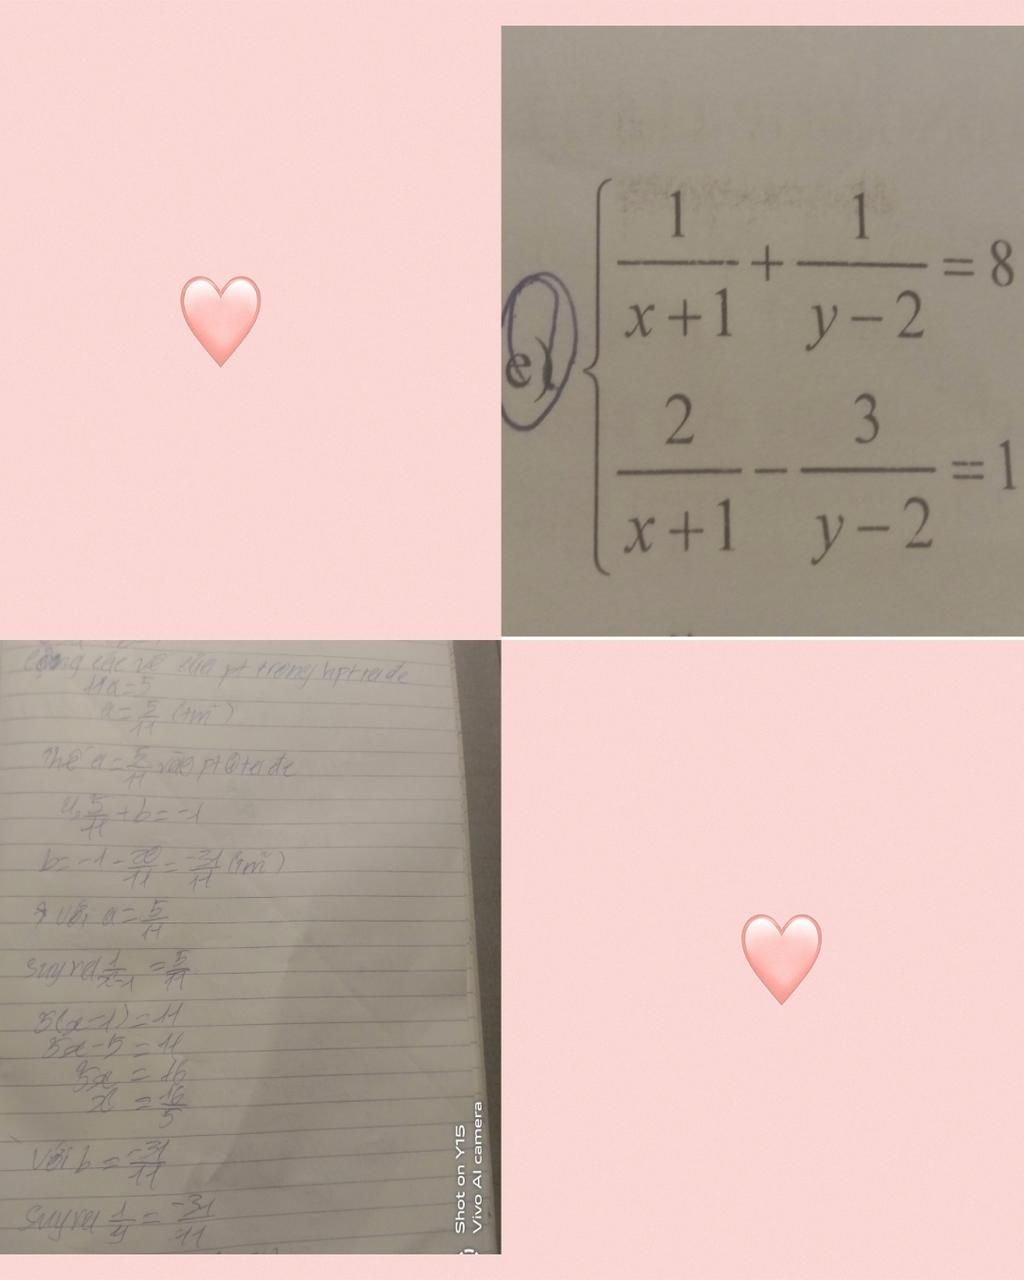 e)
1/(x+1) + 1/(y−2) = 8
2/(x+1) − 3/(y−2) = 1
Cộng các vế của pt trong hpt ta đc
11a=5
a= 5/11 (tm)
thế a= 5/11 vào pt ta đc
4. 5/11 + b = -1
b= -1 - 20/11 = -31/11 (tm)
với a = 5/11
Suy ra 1/(x-1) = 5/11
5(x-1) = 11
5x-5 = 11
5x = 16
x = 16/5
Với b = -31/11
Suy ra 1/y = -31/11
Shot on Y15
Vivo AI camera